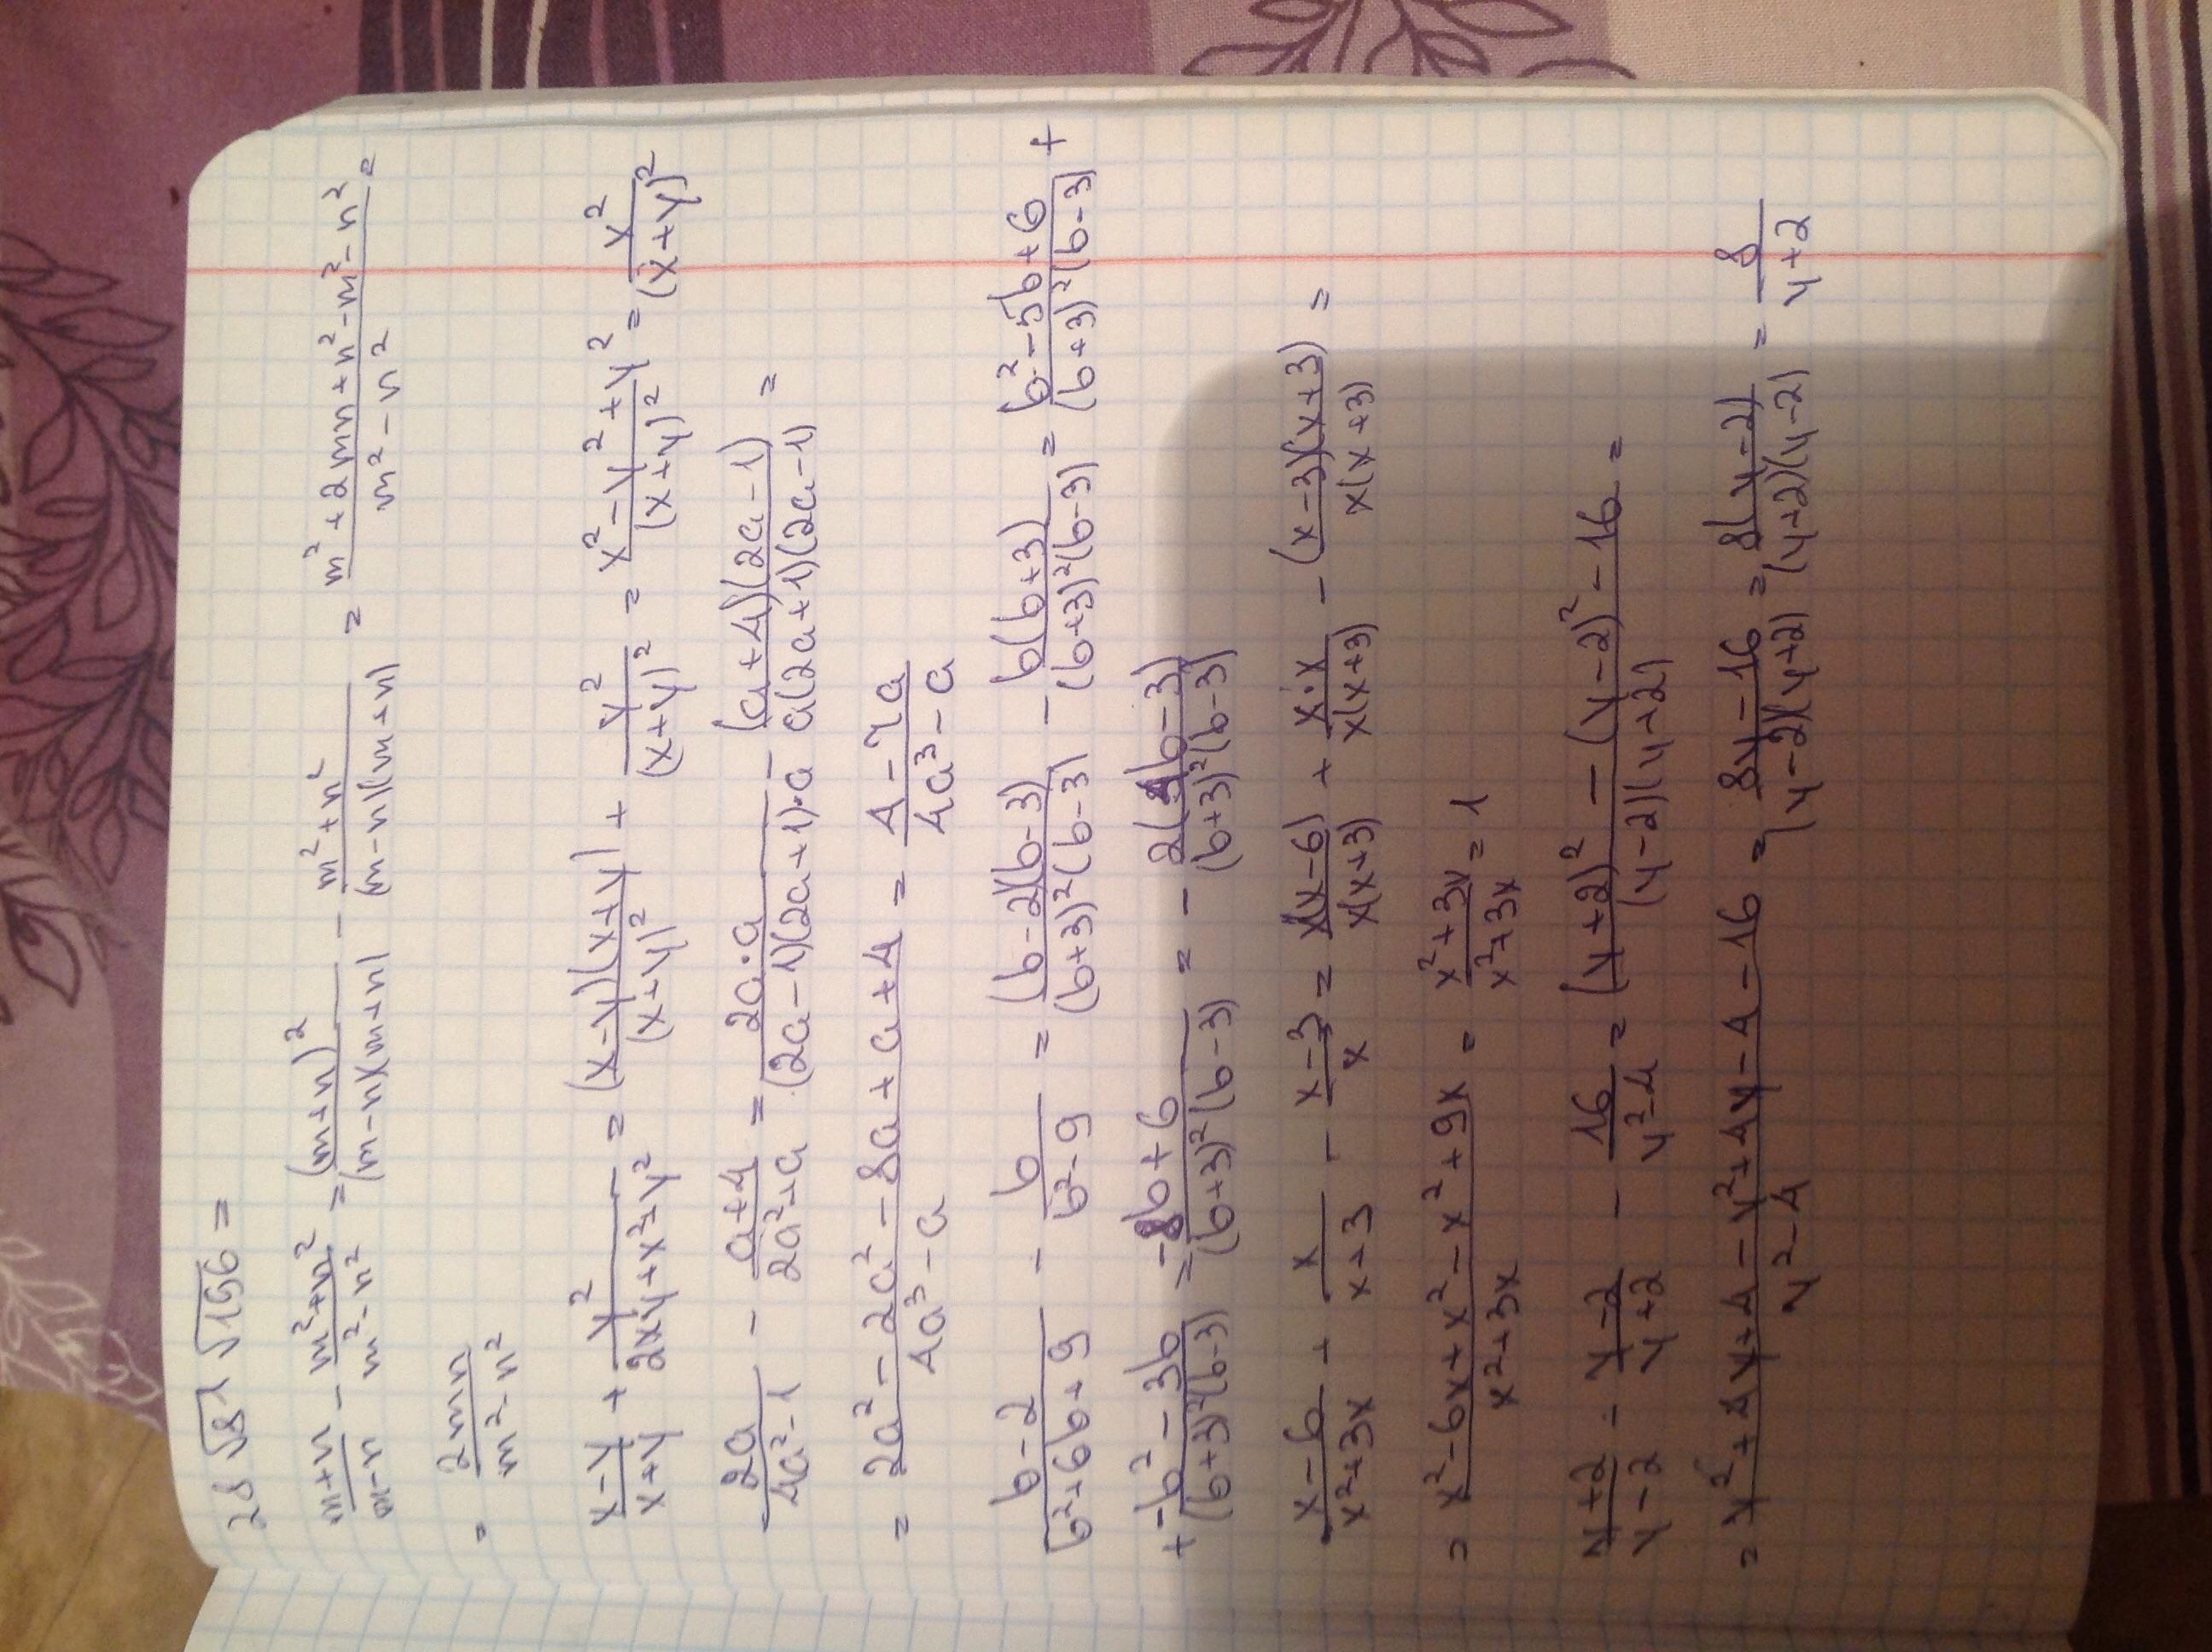 28 √81 √196 =
(m+n)/(m-n) - (m²+n²)/(m²-n²) = (m+n)²/((m-n)(m+n)) - (m²+n²)/((m-n)(m+n)) = (m²+2mn+n²-m²-n²)/(m²-n²) =
= 2mn/(m²-n²)
(x-y)/(x+y) + y²/(2xy+x²+y²) = (x-y)(x+y)/(x+y)² + y²/(x+y)² = (x²-y²+y²)/(x+y)² = x²/(x+y)²
2a/(4a²-1) - (a+4)/(2a²+a) = 2a·a/((2a-1)(2a+1)·a) - (a+4)(2a-1)/(a(2a+1)(2a-1)) =
= (2a²-2a²-8a+a+4)/(4a³-a) = (4-7a)/(4a³-a)
(b-2)/(b²+6b+9) - b/(b²-9) = (b-2)(b-3)/((b+3)²(b-3)) - b(b+3)/((b+3)²(b-3)) = (b²-5b+6)/((b+3)²(b-3)) +
+ (-b²-3b)/((b+3)²(b-3)) = (-8b+6)/((b+3)²(b-3)) = - 2(4b-3)/((b+3)²(b-3))
(x-6)/(x²+3x) + x/(x+3) - (x-3)/x = x(x-6)/(x(x+3)) + x·x/(x(x+3)) - (x-3)(x+3)/(x(x+3)) =
= (x²-6x+x²-x²+9x)/(x²+3x) = (x²+3x)/(x²+3x) = 1
(y+2)/(y-2) - (y-2)/(y+2) - 16/(y²-4) = ((y+2)²-(y-2)²-16)/((y-2)(y+2)) =
= (y²+4y+4-y²+4y-4-16)/(y²-4) = (8y-16)/((y-2)(y+2)) = 8(y-2)/((y+2)(y-2)) = 8/(y+2)